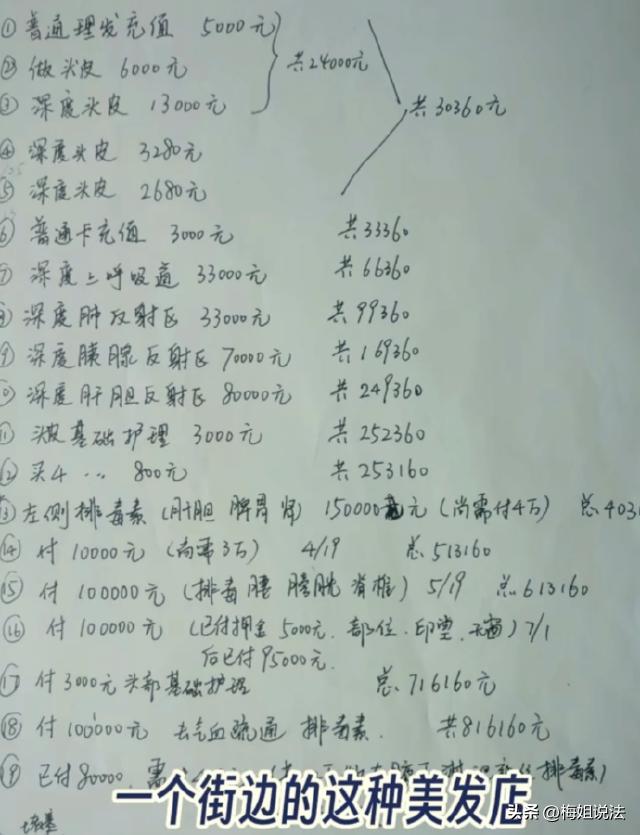 ① 普通理发充值 5000元
② 做头皮 6000元 共24000元
③ 深度头皮 13000元 共30360元
④ 深度头皮 3280元
⑤ 深度头皮 2680元
⑥ 普通卡充值 3000元 共33360
⑦ 深度上呼吸道 33000元 共66360
⑧ 深度肺反射区 33000元 共99360
⑨ 深度胰腺反射区 70000元 共169360
⑩ 深度肝胆反射区 80000元 共249360
⑪ 头皮基础护理 3000元 共252360
⑫ 买4 … 800元 共253160
⑬ 左侧排毒素(肝胆 脾胃 肾) 150000元 (尚需付4万) 总403
⑭ 付10000元 (尚需3万) 4/19 总513160
⑮ 付100000元 (排毒 腰 膀胱 脊椎) 5/19 总613160
⑯ 付100000元 (已付押金5000元. 部位. 印堂. ) 7/1
后已付95000元.
⑰ 付3000元头部基础护理 总.716160元
⑱ 付100000元 去气血疏通 排毒素. 共816160元
⑲ 已付80000. 需 排毒素)
一个街边的这种美发店
头条 @梅姐说法